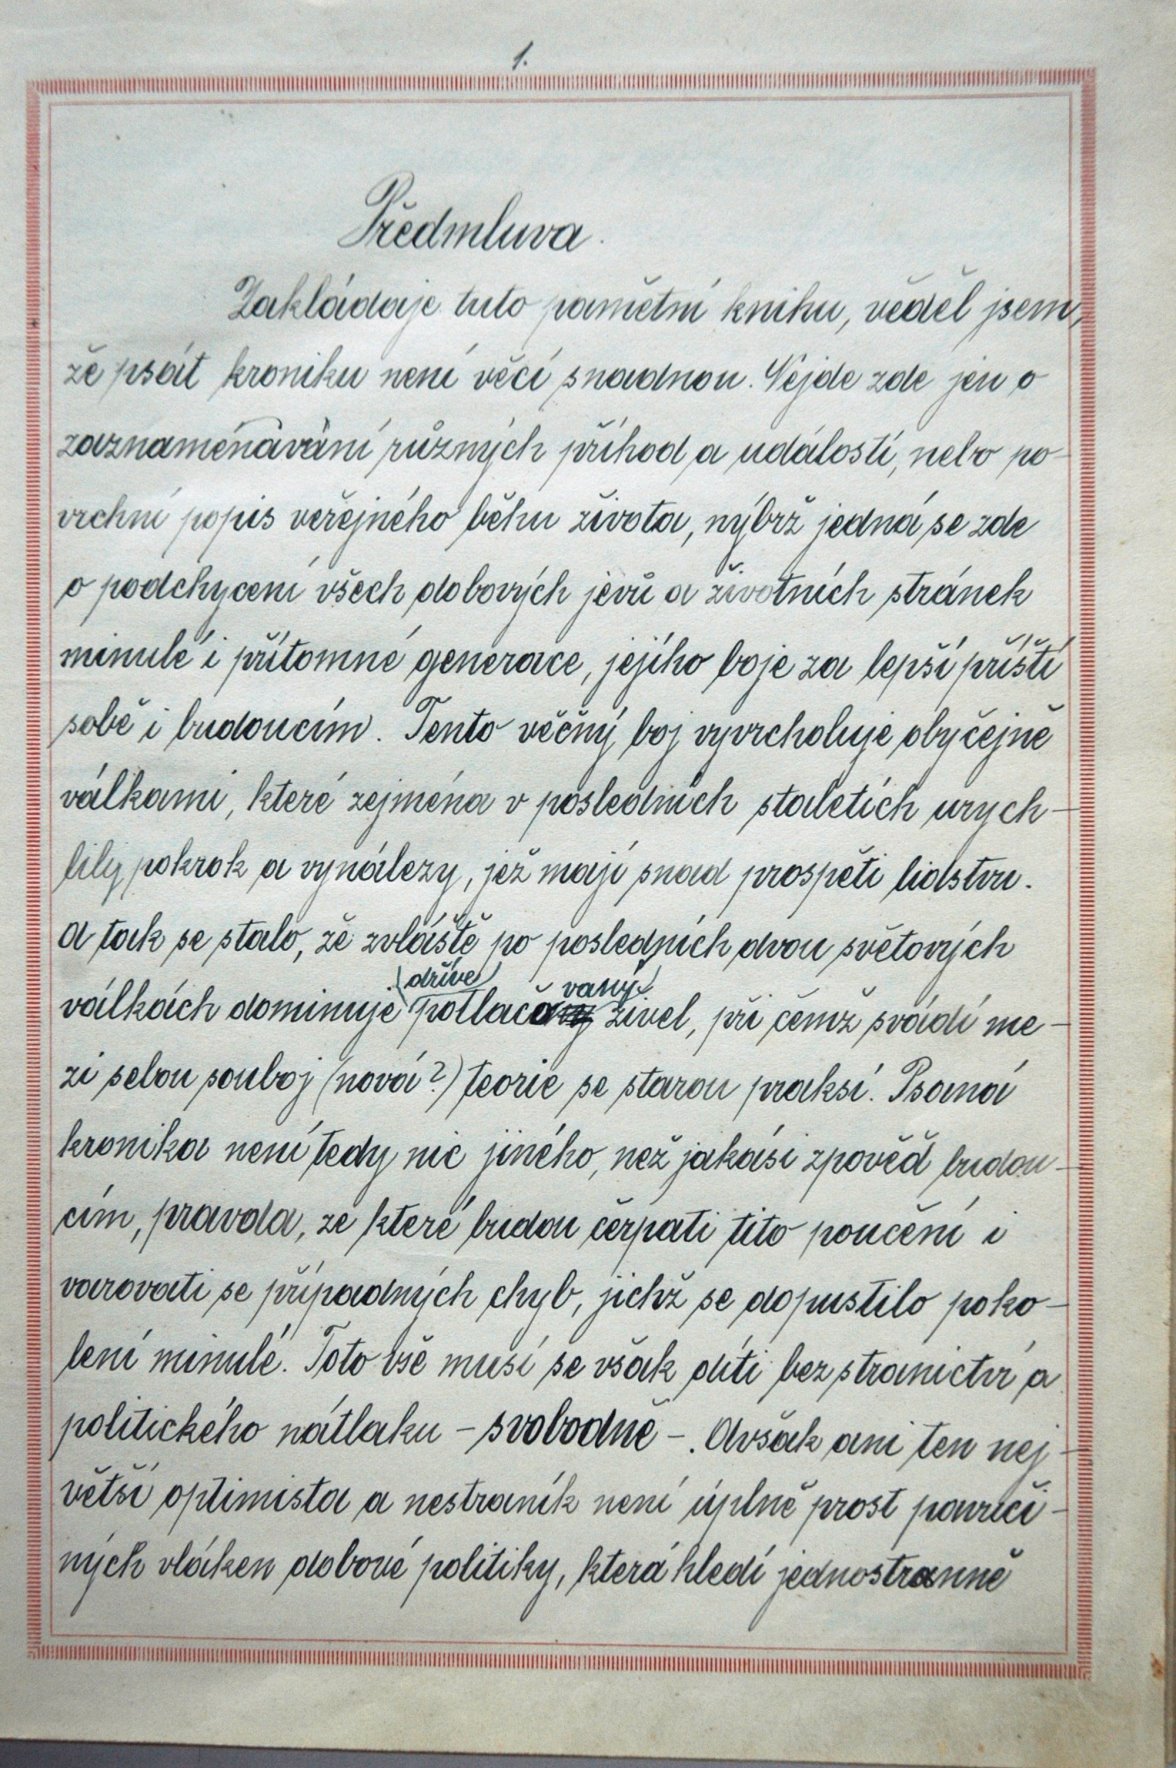 1.
Předmluva.
Zakládaje tuto pamětní knihu, věděl jsem,
že psát kroniku není věcí snadnou. Nejde zde jen o
zaznamenávání různých příhod a událostí, nebo po-
vrchní popis veřejného běhu života, nýbrž jedná se zde
o podchycení všech dobových jevů a životních stránek
minulé i přítomné generace, jejího boje za lepší příští
sobě i budoucím. Tento věčný boj vyvrcholuje obyčejně
válkami, které zejména v posledních staletích urych-
lily pokrok a vynálezy, jež mají snad prospěti lidstvu.
A tak se stalo, že zvláště po posledních dvou světových
válkách dominuje dříve potlačovaný živel, při čemž svádí me-
zi sebou souboj (nová?) teorie se starou praksí. Psaná
kronika není tedy nic jiného, než jakási zpověď budou-
cím, pravda, ze které budou čerpati tito poučení i
varovati se případných chyb, jichž se dopustilo poko-
lení minulé. Toto vše musí se však díti bez stranictví a
politického nátlaku – svobodně –. Avšak ani ten nej-
větší optimista a nestraník není úplně prost pavuči-
ných vláken dobové politiky, která hledí jednostranně